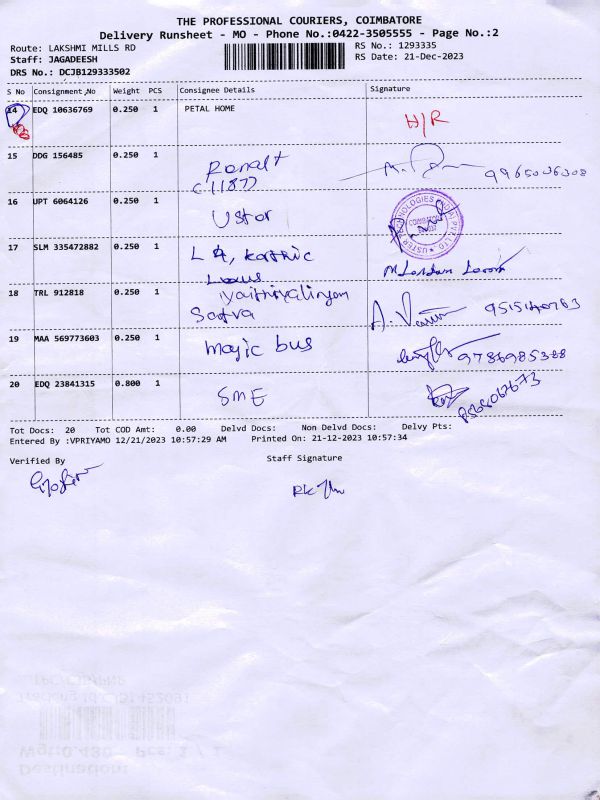 THE PROFESSIONAL COURIERS, COIMBATORE
Delivery Runsheet - MO - Phone No.:0422-3505555 - Page No.:2
Route: LAKSHMI MILLS RD
RS No.: 1293335
Staff: JAGADEESH
RS Date: 21-Dec-2023
DRS No.: DCJB129333502
S No Consignment No Weight PCS Consignee Details Signature
14 EDQ 10636769 0.250 1 PETAL HOME H/R
15 DDG 156485 0.250 1 9965036308
C(1187)
16 UPT 6064126 0.250 1 Ustor
17 SLM 335472882 0.250 1 L &
18 TRL 912818 0.250 1
19 MAA 569773603 0.250 1 magic bus 9786985388
20 EDQ 23841315 0.800 1 SME
Tot Docs: 20 Tot COD Amt: 0.00 Delvd Docs: Non Delvd Docs: Delvy Pts:
Entered By :VPRIYAMO 12/21/2023 10:57:29 AM Printed On: 21-12-2023 10:57:34
Verified By Staff Signature